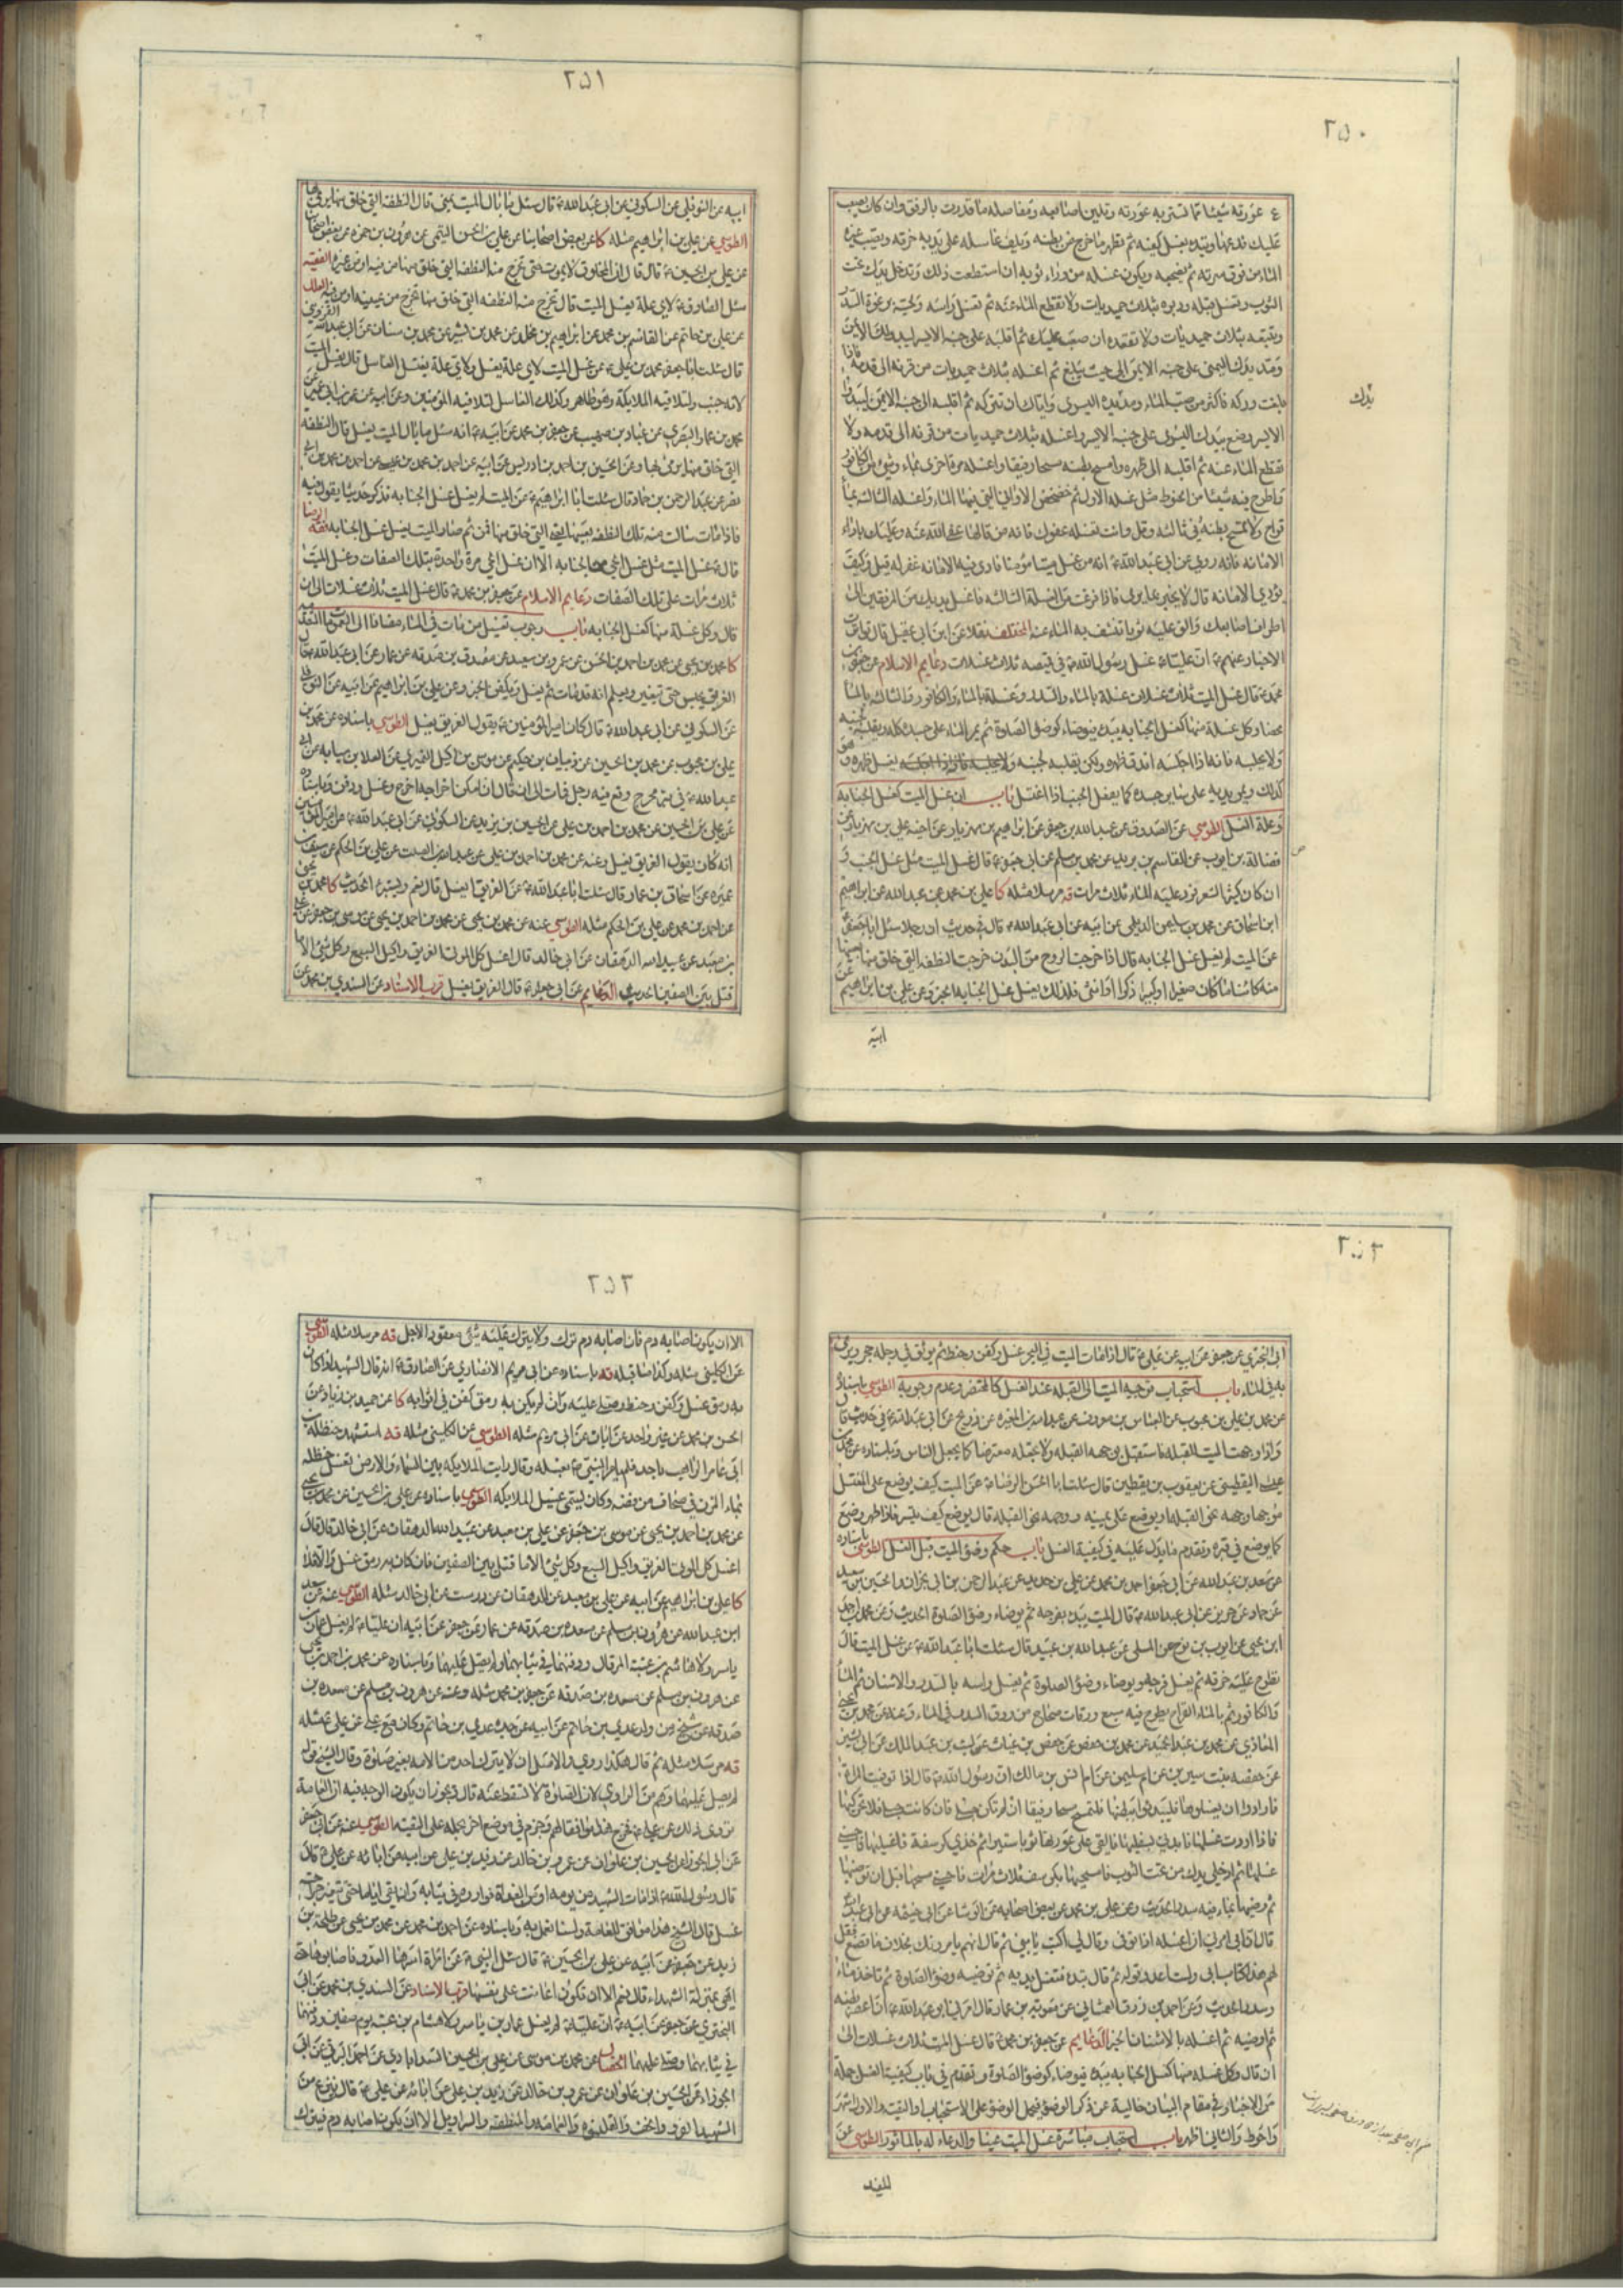 ٢٥٠
عورته شيئا تستر به عورته وتلين اصابعه ومفاصله ما قدرت بالرفق وان كان يصعب
عليك فدعها وتبدء بغسل كفيه ثم تطهر ما خرج من بطنه ويلف غاسله على يديه خرقة ويصب غيره
الماء من فوق سرته ثم تضجعه ويكون غسله من وراء ثوبه ان استطعت ذلك وتدخل يدك تحت
الثوب وتغسل قبله ودبره بثلاث حميديات ولا تقطع الماء عنه ثم تغسل راسه ولحيته برغوة السدر
وتتبعه بثلاث حميديات ولا تقعده ان صعب عليك ثم اقلبه على جنبه الايسر ليبدو لك الايمن
ومد يدك اليمنى على جنبه الايمن الى حيث يبلغ ثم اغسله بثلاث حميديات من قرنه الى قدمه فاذا
بلغت وركه فاكثر من صب الماء واياك ان تتركه ثم اقلبه الى جنبه الايمن ليبدو لك
يدك
الايسر وضع بيدك اليسرى على جنبه الايسر واغسله بثلاث حميديات من قرنه الى قدمه ولا
تقطع الماء عنه ثم اقلبه الى ظهره وامسح بطنه مسحا رفيقا واغسله مرة اخرى بماء وشئ من الكافور
واطرح فيه شيئا من الحنوط مثل غسله الاول ثم خضخض الاواني التي فيها الماء واغسله الثالثة بماء
قراح ولا تمسح بطنه في ثالثه وقل وانت تغسله عفوك عفوك فانه من قالها عفى الله عنه وعليك باداء
الامانة فانه روي عن ابي عبد الله ع انه من غسل ميتا مؤمنا فادى فيه الامانة غفر له قيل وكيف
يؤدي الامانة قال لا يخبر بما يرى فاذا فرغت من الغسلة الثالثة فاغسل يديك من المرفقين الى
اطراف اصابعك والق عليه ثوبا تنشف به الماء عنه المختلف نقلا عن ابن ابي عقيل قال تواترت
الاخبار عنهم ع ان عليا ع غسل رسول الله ص في قميصه ثلاث غسلات دعايم الاسلام عن جعفر بن
محمد ع قال غسل الميت ثلاث غسلات غسلة بالماء والسدر وغسلة بالماء والكافور والثالثة بالماء
محضا وكل غسلة منها كغسل الجنابة يبدء فيوضاء كوضوء الصلوة ثم يمر الماء على جسده كله ويقلبه لجنبه
ولا يجلسه فانه اذا اجلسه اندق ظهره ولكن يقلبه لجنبه يغسل ظهره وهو
كذلك ويمر يديه على سائر جسده كما يغسل الجنب اذا اغتسل باب ان غسل الميت كغسل الجنابة
وعلة الغسل الطوسي عن الصدوق عن عبد الله بن جعفر عن ابراهيم بن مهزيار عن اخيه علي بن مهزيار عن
فضالة بن ايوب عن القاسم بن بريد عن محمد بن مسلم عن ابي جعفر ع قال غسل الميت مثل غسل الجنب و
ان كان كثير الشعر فزد عليه الماء ثلاث مرات قه مرسلا مثله كا علي بن محمد عن عبد الله عن ابراهيم
ابن اسحاق عن محمد بن سليمن الديلمي عن ابيه عن ابي عبد الله ع قال في حديث ان رجلا سئل ابا جعفر ع
عن الميت لم يغسل غسل الجنابة قال اذا خرجت الروح من البدن خرجت النطفة التي خلق منها بعينها
منه كائنا ما كان صغيرا او كبيرا ذكرا او انثى فلذلك يغسل غسل الجنابة الخبر وعن علي بن ابراهيم عن
ابيه
٢٥١
ابيه عن النوفلي عن السكوني عن ابي عبد الله ع قال سئل ما بال الميت يمنى قال النطفة التي خلق منها يرمي بها
الطوسي عن علي بن ابراهيم مثله كا عن بعض اصحابنا عن علي بن الحسن الميثمي عن هرون بن حمزة عن بعض اصحابنا
عن علي بن الحسين ع قال قال ان المخلوق لا يموت حتى تخرج منه النطفة التي خلق منها من فيه او من غيره الفقيه
سئل الصادق ع لاي علة يغسل الميت قال تخرج منه النطفة التي خلق منها تخرج من عينيه او من فيه العلل
عن علي بن حاتم عن القاسم بن محمد عن ابراهيم بن مخلد عن محمد بن بشير عن محمد بن سنان عن ابي عبد الله القزويني
قال سئلت ابا جعفر محمد بن علي ع عن غسل الميت لاي علة يغسل ولاي علة يغتسل الغاسل قال يغسل الميت
لانه جنب ولتلاقيه الملائكة وهو طاهر وكذلك الغاسل لتلاقيه المؤمنين وعن ابيه عن
محمد بن عمار البصري عن عباد بن صهيب عن جعفر بن محمد عن ابيه ع انه سئل ما بال الميت يغسل قال النطفة
التي خلق منها يرمي بها وعن الحسين بن احمد بن ادريس عن ابيه عن احمد بن محمد بن عيسى عن احمد بن محمد بن ابي
نصر عن عبد الرحمن بن حماد قال سئلت ابا ابراهيم ع عن الميت لم يغسل غسل الجنابة فذكر حديثا يقول فيه
فاذا مات سالت منه تلك النطفة بعينها التي خلق منها فمن ثم صار الميت يغسل غسل الجنابة فقه الرضا
قال ع غسل الميت مثل غسل الحي من الجنابة الا ان غسل الحي مرة واحدة بتلك الصفات وغسل الميت
ثلاث مرات على تلك الصفات دعايم الاسلام عن جعفر بن محمد ع قال غسل الميت ثلاث غسلات الى ان
قال وكل غسلة منها كغسل الجنابة باب وجوب تغسيل من مات في الماء
كا محمد بن يحيى عن محمد بن احمد بن الحسن عن عمرو بن سعيد عن مصدق بن صدقه عن عمار عن ابي عبد الله ع قال
الغريق يحبس حتى يتغير ويعلم انه قد مات ثم يغسل ويكفن الخبر وعن علي بن ابراهيم عن ابيه عن النوفلي
عن السكوني عن ابي عبد الله ع قال كان امير المؤمنين ع يقول الغريق يغسل الطوسي باسناده عن محمد بن
علي بن محبوب عن محمد بن الحسين عن ذبيان بن حكيم عن موسى بن اكيل النميري عن العلا بن سيابه عن ابي
عبد الله ع في بئر مخرج وقع فيه رجل فمات الى ان قال ان امكن اخراجه اخرج وغسل ودفن وباسناده
عن علي بن الحسين عن محمد بن احمد بن علي عن الحسين بن يزيد عن السكوني عن ابي عبد الله ع عن امير المؤمنين
انه كان يقول الغريق يغسل وعنه عن محمد بن احمد بن علي عن عبد الله بن الصلت عن علي بن الحكم عن سيف بن
عميرة عن اسحاق بن عمار قال سئلت ابا عبد الله ع عن الغريق ايغسل قال نعم ويستبرء الحديث كا محمد بن يحيى
عن احمد بن محمد عن علي بن الحكم مثله الطوسي عنه عن محمد بن يحيى عن محمد بن احمد بن يحيى عن موسى بن جعفر عن علي
بن معبد عن عبيد الله الدهقان عن ابي خالد قال اغسل كل الموتى الغريق واكيل السبع وكل شئ الا ما
قتل بين الصفين الحديث الدعايم عن ابي جعفر ع قال الغريق يغسل قرب الاسناد عن السندي بن محمد عن
٢٥٢
ابي البختري عن جعفر عن ابيه عن علي ع قال اذا مات الميت في البحر غسل وكفن وحنط ثم يوثق في رجله حجر ويرمى
به في الماء باب استحباب توجيه الميت الى القبلة عند الغسل كالمحتضر وعدم وجوبه الطوسي باسناده
عن محمد بن علي بن محبوب عن العباس بن معروف عن عبد الله بن المغيره عن ذريح عن ابي عبد الله ع في حديث قال
واذا وجهت الميت للقبلة فاستقبل بوجهه القبلة ولا تجعله معترضا كما يجعل الناس وباسناده عن محمد بن
عيسى اليقطيني عن يعقوب بن يقطين قال سئلت ابا الحسن الرضا ع عن الميت كيف يوضع على المغتسل
موجها وجهه نحو القبلة او يوضع على يمينه ووجهه نحو القبلة قال يوضع كيف تيسر فاذا طهر وضع
كما يوضع في قبره وتقدم ما يدل عليه في كيفية الغسل باب حكم وضوء الميت قبل الغسل الطوسي باسناده
عن سعد بن عبد الله عن ابي جعفر احمد بن محمد عن علي بن حديد عن عبد الرحمن بن ابي نجران والحسين بن سعيد
عن حماد عن حريز عن ابي عبد الله ع قال الميت يبدء بفرجه ثم يوضاء وضوء الصلوة الحديث وعن محمد بن احمد
ابن يحيى عن ايوب بن نوح عن المسلي عن عبد الله بن عبيد قال سئلت ابا عبد الله ع عن غسل الميت قال
تطرح عليه خرقة ثم يغسل فرجه ويوضاء وضوء الصلوة ثم يغسل راسه بالسدر والاشنان ثم الماء
والكافور ثم بالماء القراح يطرح فيه سبع ورقات صحاح من ورق السدر في الماء وعنه عن محمد بن يحيى
المعاذي عن محمد بن عبد الحميد عن محمد بن حفص عن حفص بن غياث عن ليث عن عبد الملك عن ابي بشير
عن حفصه بنت سيرين عن ام سليمن عن ام انس بن مالك ان رسول الله ص قال اذا توفيت المراة
فارادوا ان يغسلوها فليبدء وا ببطنها فلتمسح مسحا رفيقا ان لم تكن حبلى فان كانت حبلى فلا تحركيها
فاذا اردت غسلها فابدئي بسفليها فالقي على عورتها ثوبا ستيرا ثم خذي كرسفة فاغسليها فاحسني
غسلها ثم ادخلي يدك من تحت الثوب فامسحيها بكرسف ثلاث مرات فاحسني مسحها قبل ان توضيها
ثم وضيها بماء فيه سدر الحديث وعن علي بن محمد عن بعض اصحابه عن الوشا عن ابي خيثمه عن ابي عبد الله
قال ان ابي امرني ان اغسله اذا توفي وقال لي اكتب يا بني ثم قال انهم يامرونك بخلاف ما تصنع فقل
لهم هذا كتاب ابي ولست اعدو قوله ثم قال تبدء فتغسل يديه ثم توضيه وضوء الصلوة ثم تاخذ ماء
وسدرا الحديث وعن احمد بن رزق الغمشاني عن معوية بن عمار قال امرني ابو عبد الله ع ان اعصر بطنه
ثم اوضيه ثم اغسله بالاشنان الخبر الدعايم عن جعفر بن محمد ع قال غسل الميت ثلاث غسلات الى
ان قال وكل غسله منها كغسل الجنابة يبدء فيوضاء كوضوء الصلوة وتقدم في باب كيفية الغسل جملة
من الاخبار في مقام البيان خالية عن ذكر الوضوء فيحمل الوضوء على الاستحباب او التقية والاول اشهر
واحوط والثاني اظهر باب استحباب مباشرة غسل الميت عينا والدعاء له بالماثور الطوسي عن
المفيد
٢٥٣
الا ان يكون اصابه دم فان اصابه دم ترك ولا يترك عليه شئ معقود الا حل قه مرسلا مثله الطوسي
عن الكليني مثله وكذا ما قبله قه باسناده عن ابي مريم الانصاري عن الصادق ع انه قال الشهيد اذا كان
به رمق غسل وكفن وحنط وصلى عليه وان لم يكن به رمق كفن في اثوابه كا عن حميد بن زياد عن
الحسن بن محمد عن غير واحد عن ابان عن ابي مريم مثله الطوسي عن الكليني مثله قه استشهد حنظلة بن
ابي عامر الراهب باحد فلم يامر النبي ص بغسله وقال رايت الملائكه بين السماء والارض تغسل حنظله
بماء المزن في صحاف من فضه وكان يسمى غسيل الملائكه الطوسي باسناده عن علي بن الحسين عن محمد بن يحيى
عن محمد بن احمد بن يحيى عن موسى بن جعفر عن علي بن معبد عن عبيد الله الدهقان عن ابي خالد قال قال
اغسل كل الموتى الغريق واكيل السبع وكل شئ الا ما قتل بين الصفين فان كان به رمق غسل والا فلا
كا علي بن ابراهيم عن ابيه عن علي بن معبد عن الدهقان عن درست عن ابي خالد مثله الطوسي عنه عن سعد
ابن عبد الله عن هرون بن مسلم عن مسعده بن صدقه عن عمار عن جعفر عن ابيه ان عليا ع لم يغسل عمار بن
ياسر ولا هاشم بن عتبة المرقال ودفنهما في ثيابهما ولم يصل عليهما وباسناده عن محمد بن احمد بن يحيى
عن هرون بن مسلم عن مسعده بن صدقه عن جعفر بن محمد مثله وعنه عن هرون بن مسلم عن مسعده بن
صدقه عن شيخ من ولد عدي بن حاتم عن ابيه عن جده عدي بن حاتم وكان مع علي ع عن علي ع مثله
قه مرسلا مثله ثم قال هكذا روي والاصل ان لا يترك احد من الامه بغير صلوة وقال الشيخ قوله
لم يصل عليهما وهم من الراوي لان الصلوة لا تسقط عنه قال ويجوز ان يكون الوجه فيه ان العامة
تروي ذلك عن علي ع فخرج هذا موافقا لهم وجزم في موضع اخر بحمله على التقيه الطوسي عنه عن ابي جعفر
عن ابي الجوزا عن الحسين بن علوان عن عمرو بن خالد عن زيد بن علي عن ابيه عن ابائه عن علي ع قال
قال رسول الله ص اذا مات الشهيد من يومه او من الغد فواروه في ثيابه وان بقي اياما حتى تتغير جراحته
غسل قال الشيخ هذا موافق للعامة ولسنا نعمل به وباسناده عن احمد بن محمد عن محمد بن يحيى عن طلحة بن
زيد عن جعفر عن ابيه عن علي بن الحسين ع قال سئل النبي ص عن امراة اسرها العدو فاصابوها حتى
اهي بمنزلة الشهداء قال نعم الا ان تكون اعانت على نفسها قرب الاسناد عن السندي بن محمد عن ابي
البختري عن جعفر عن ابيه ع ان عليا ع لم يغسل عمار بن ياسر ولا هاشم بن عتبه يوم صفين ودفنهما
في ثيابهما وصلى عليهما الخصال عن محمد بن موسى عن علي بن الحسين السعدابادي عن احمد البرقي عن ابي
الجوزاء عن الحسين بن علوان عن عمرو بن خالد عن زيد بن علي عن ابائه عن علي ع قال ينزع عن
الشهيد الفرو والخف والقلنسوة والعمامة والمنطقة والسراويل الا ان يكون اصابه دم فيترك